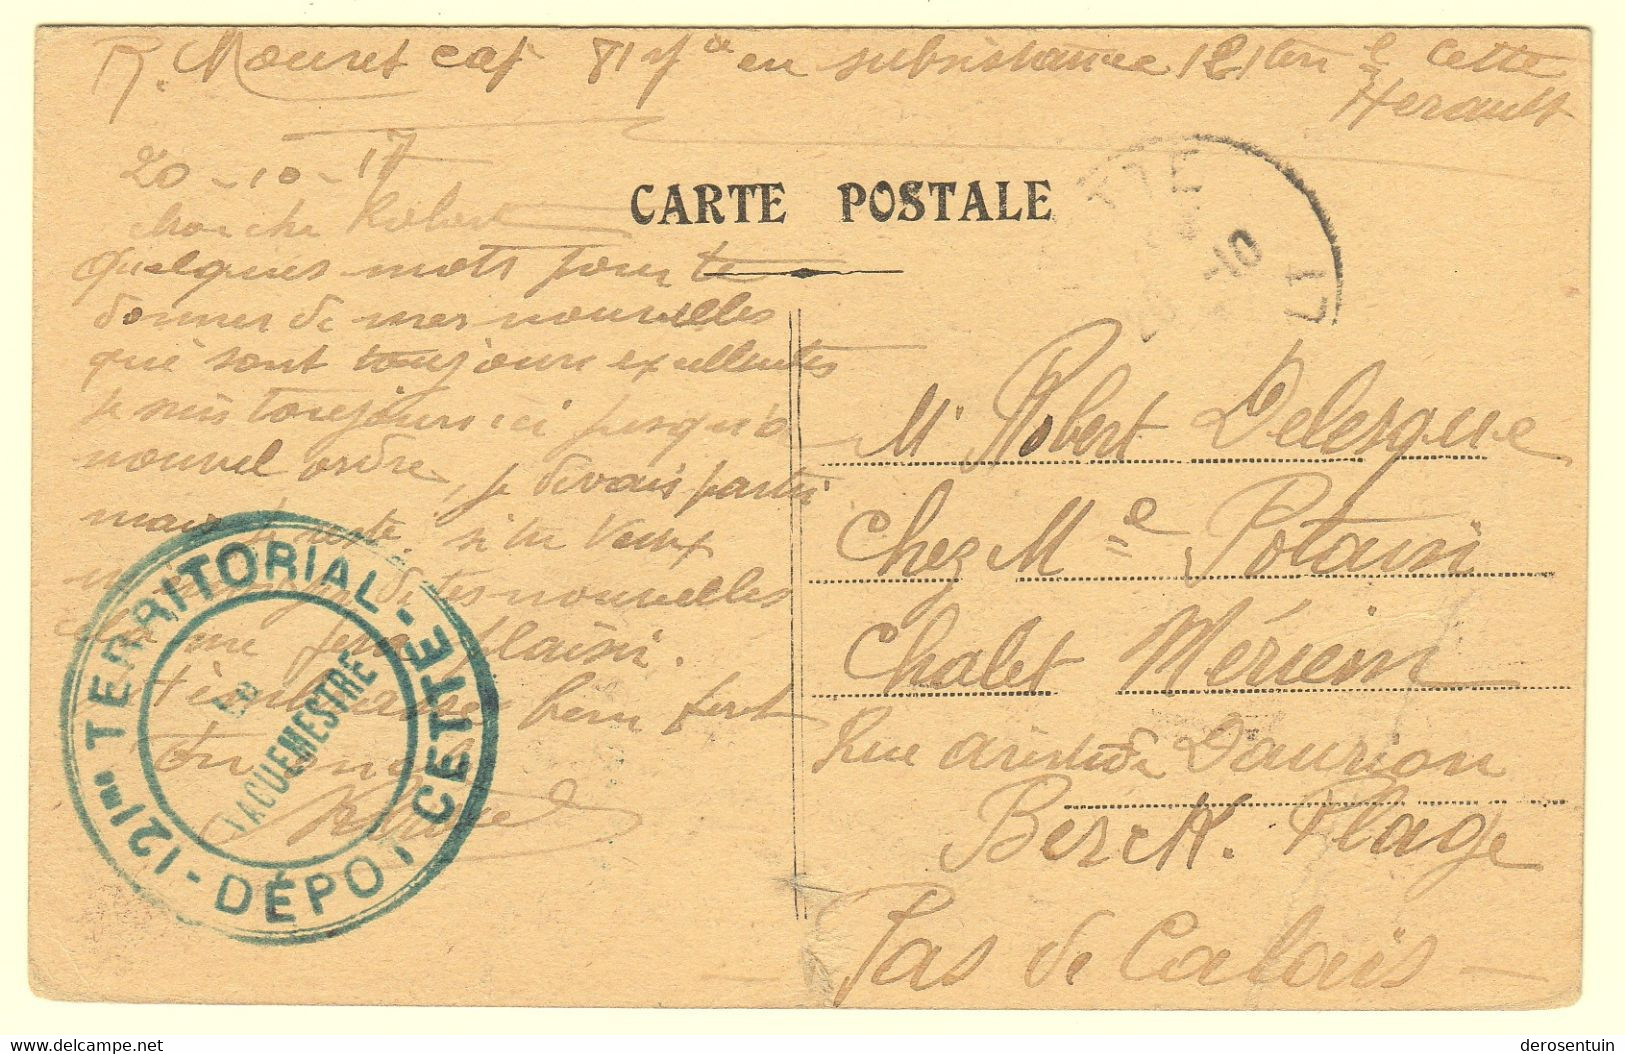 R. Mouret caj 81 en subsistance 121 ter Cette
Herault
20-10-17
CARTE POSTALE
mon cher Robert
quelques mots pour te
donner de mes nouvelles
qui sont toujours excellentes
je suis toujours ici jusqu'à
nouvel ordre, je devais partir
mais je reste. si tu veux
nouvelles
cela me fera plaisir.
t'embrasse bien fort
Ton
20 -10 17
121me TERRITORIAL - CETTE
DÉPOT
Le
VAGUEMESTRE
Mr Robert Delesque
Chez Me Potain
Chalet Mériem
Rue aristide Daurion
Berck. Plage
Pas de Calais
derosentuin